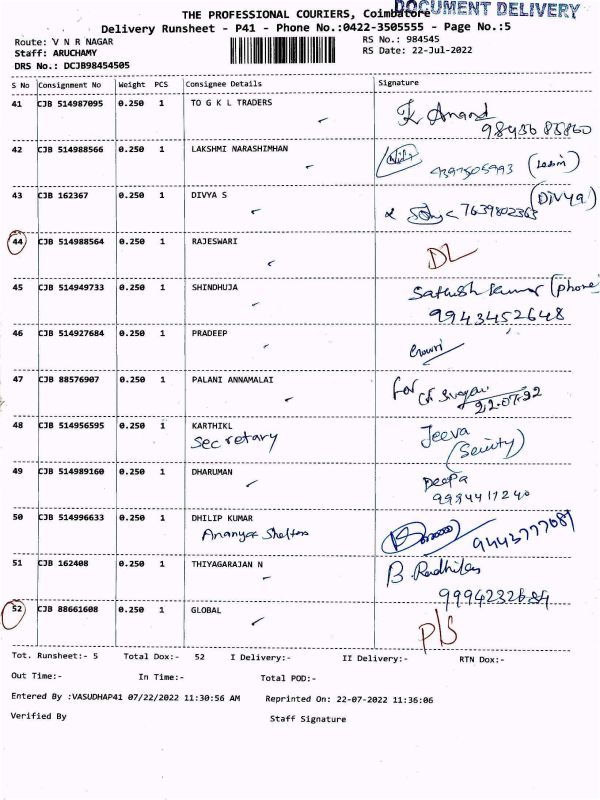 DOCUMENT DELIVERY
THE PROFESSIONAL COURIERS, Coimbatore
Delivery Runsheet - P41 - Phone No.:0422-3505555 - Page No.:5
Route: V N R NAGAR
RS No.: 984545
Staff: ARUCHAMY
RS Date: 22-Jul-2022
DRS No.: DCJB98454505
S No Consignment No Weight PCS Consignee Details Signature
41 CJB 514987095 0.250 1 TO G K L TRADERS K Anand
98436 85860
42 CJB 514988566 0.250 1 LAKSHMI NARASHIMHAN
43 CJB 162367 0.250 1 DIVYA S (Divya)
7639802365
44 CJB 514988564 0.250 1 RAJESWARI DL
45 CJB 514949733 0.250 1 SHINDHUJA Sathish kumar (phone)
9943452648
46 CJB 514927684 0.250 1 PRADEEP
47 CJB 88576907 0.250 1 PALANI ANNAMALAI for
22-07-22
48 CJB 514956595 0.250 1 KARTHIKL Jeeva
Secretary
49 CJB 514989160 0.250 1 DHARUMAN Deepa
9984417240
50 CJB 514996633 0.250 1 DHILIP KUMAR 9443777089
Ananya Shelters
51 CJB 162408 0.250 1 THIYAGARAJAN N B. Radhika
9994232684
52 CJB 88661608 0.250 1 GLOBAL P/S
Tot. Runsheet:- 5 Total Dox:- 52 I Delivery:- II Delivery:- RTN Dox:-
Out Time:- In Time:- Total POD:-
Entered By :VASUDHAP41 07/22/2022 11:30:56 AM Reprinted On: 22-07-2022 11:36:06
Verified By Staff Signature